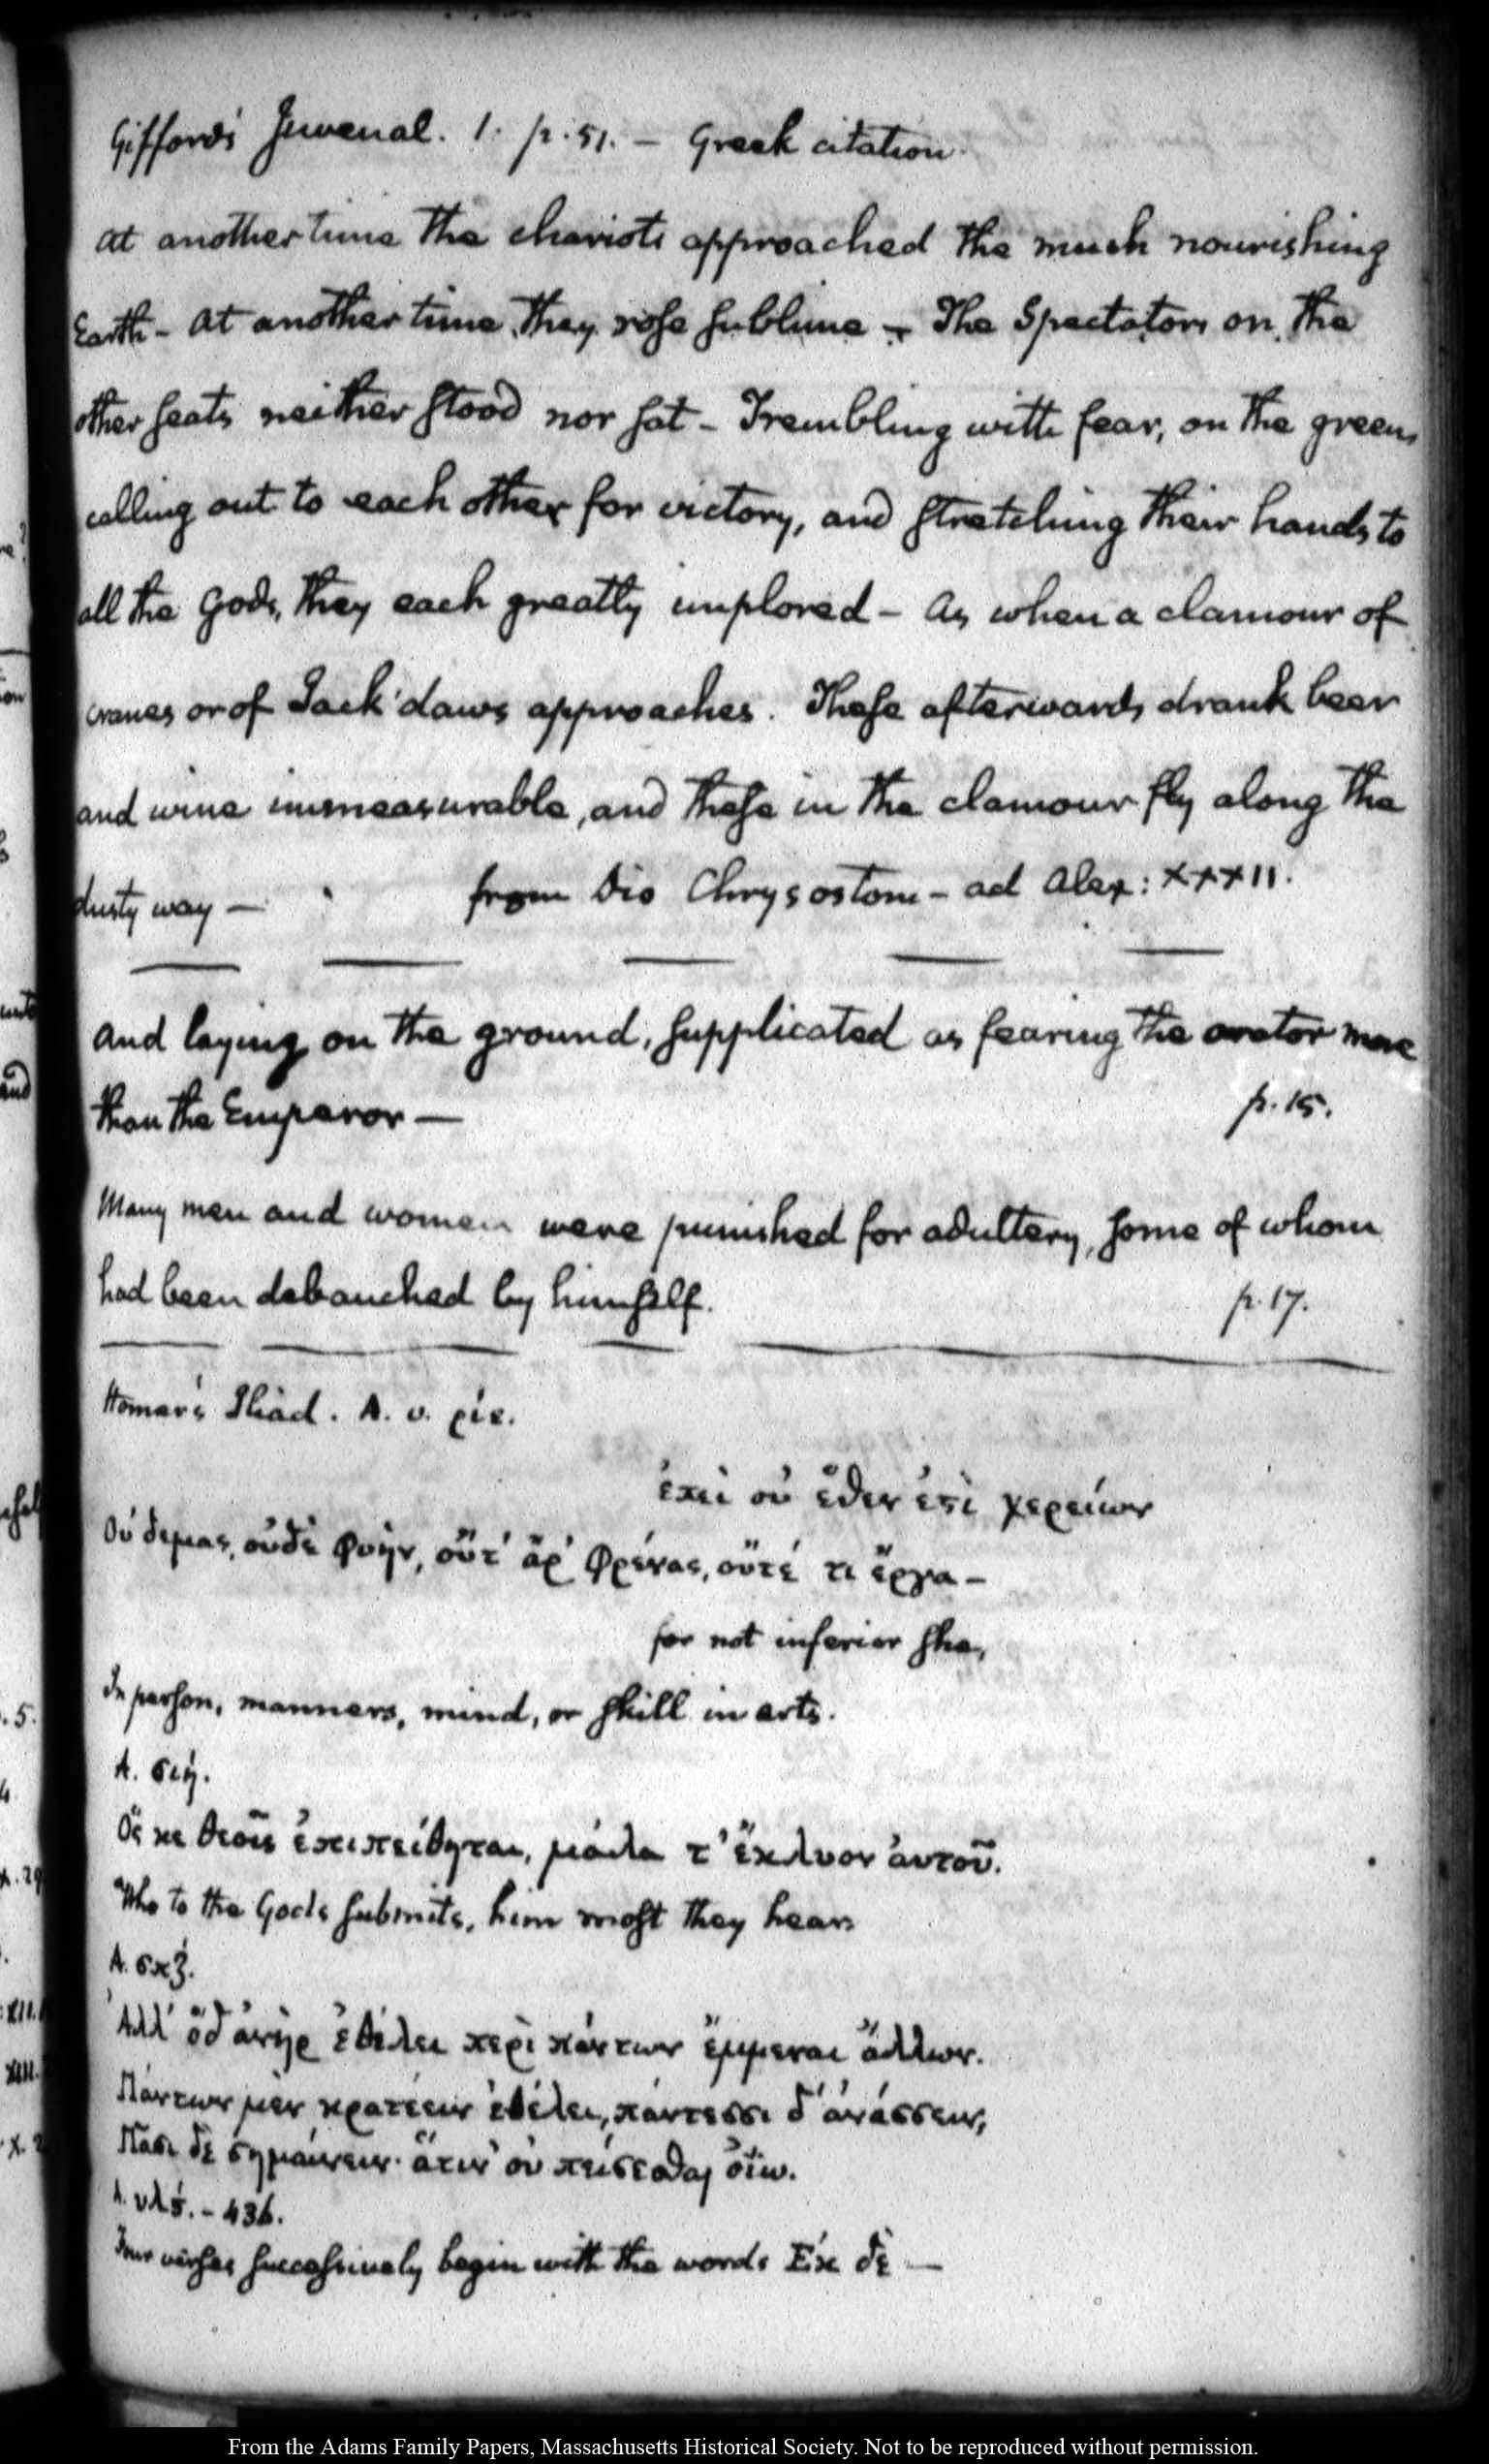 Gifford's Juvenal. 1. p. 51. — Greek citation.
At another time the chariots approached the much nourishing
Earth — At another time they rose sublime — The Spectators on the
other seats neither stood nor sat — Trembling with fear, on the green,
calling out to each other for victory, and stretching their hands to
all the Gods, they each greatly implored — As when a clamour of
cranes or of Jack'daws approaches. These afterwards drank beer
and wine immeasurable, and these in the clamour fly along the
dusty way —
from Dio Chrysostom — ad Alex: XXXII.
And laying on the ground, supplicated as fearing the orator more
than the Emperor — p. 15.
Many men and women were punished for adultery, some of whom
had been debauched by himself. p. 17.
Homer's Iliad. A. v. ριε.
ἐπεὶ οὐ ἕθεν ἐστι χερείων
Οὐ δεμας, οὐδὲ φυὴν, οὔτ' ἂρ' φρένας, οὔτέ τι ἔργα —
for not inferior she,
In person, manners, mind, or skill in arts.
A. σιή.
Ὅς κε θεοῖς ἐπιπείθηται, μάλα τ' ἔκλυον ἀυτοῦ.
Who to the Gods submits, him most they hear
A. σπζ.
Ἀλλ' ὅδ' ἀνὴρ ἐθέλει περὶ πάντων ἔμμεναι ἄλλων.
Πάντων μὲν κρατέειν ἐθέλει, πάντεσσι δ' ἀνάσσειν,
Πᾶσι δὲ σημαίνειν· ἅτιν' οὐ πείσεσθαι ὀΐω.
A. υλς. — 436.
Four verses successively begin with the words Ἐκ δὲ —
From the Adams Family Papers, Massachusetts Historical Society. Not to be reproduced without permission.